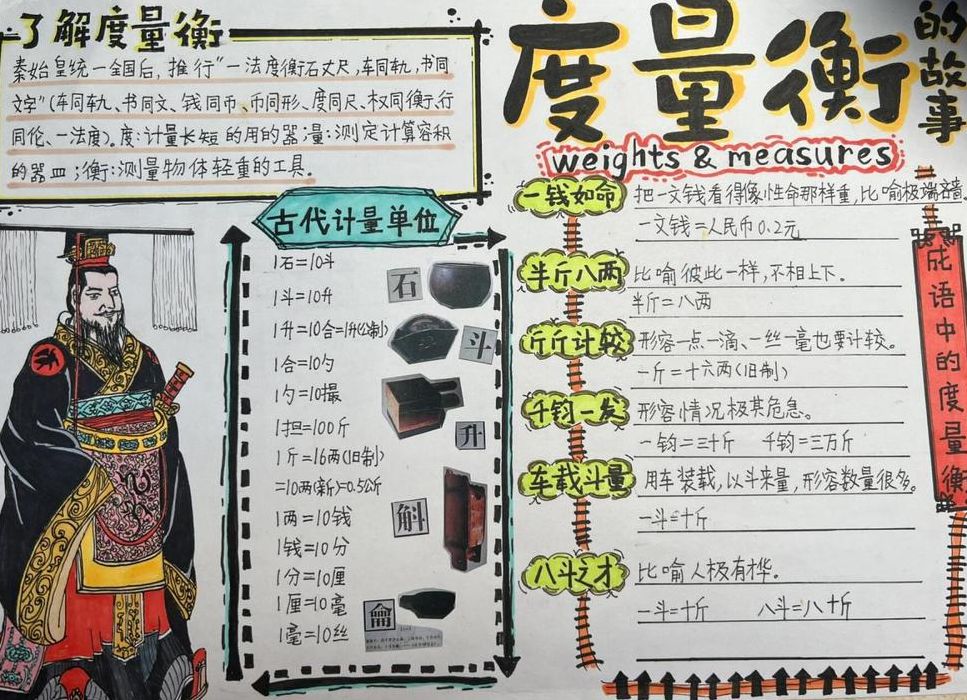 了解度量衡
秦始皇统一全国后，推行"一法度衡石丈尺，车同轨，书同
文字"(车同轨、书同文、钱同币、币同形、度同尺、权同衡、行
同伦、一法度)。度:计量长短的用的器;量:测定计算容积
的器皿;衡:测量物体轻重的工具。
度量衡
的故事
weights & measures
古代计量单位
1石=10斗
1斗=10升
1升=10合=1升(公制)
1合=10勺
1勺=10撮
1担=100斤
1斤=16两(旧制)
=10两(新)=0.5公斤
1两=10钱
1钱=10分
1分=10厘
1厘=10毫
1毫=10丝
石
斗
升
斛
龠
一钱如命
把一文钱看得像性命那样重,比喻极端吝啬.
一文钱=人民币0.2元
半斤八两
比喻彼此一样,不相上下.
半斤=八两
斤斤计较
形容一点一滴、一丝一毫也要计较。
一斤=十六两(旧制)
千钧一发
形容情况极其危急。
一钧=三十斤 千钧=三万斤
车载斗量
用车装载,以斗来量,形容数量很多。
一斗=十斤
八斗之才
比喻人极有桦。
一斗=十斤 八斗=八十斤
成语中的度量衡